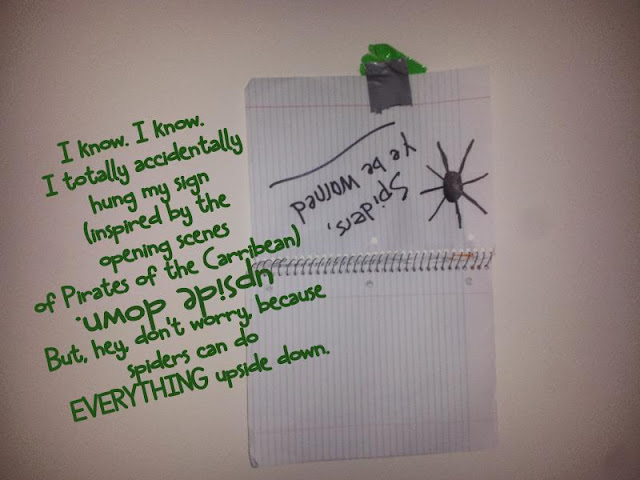 I know. I know.
I totally accidentally
hung my sign
(inspired by the
opening scenes
of Pirates of the Carribean)
upside down.
But, hey, don't worry, because
spiders can do
EVERYTHING upside down.
Spiders,
Ye be warned